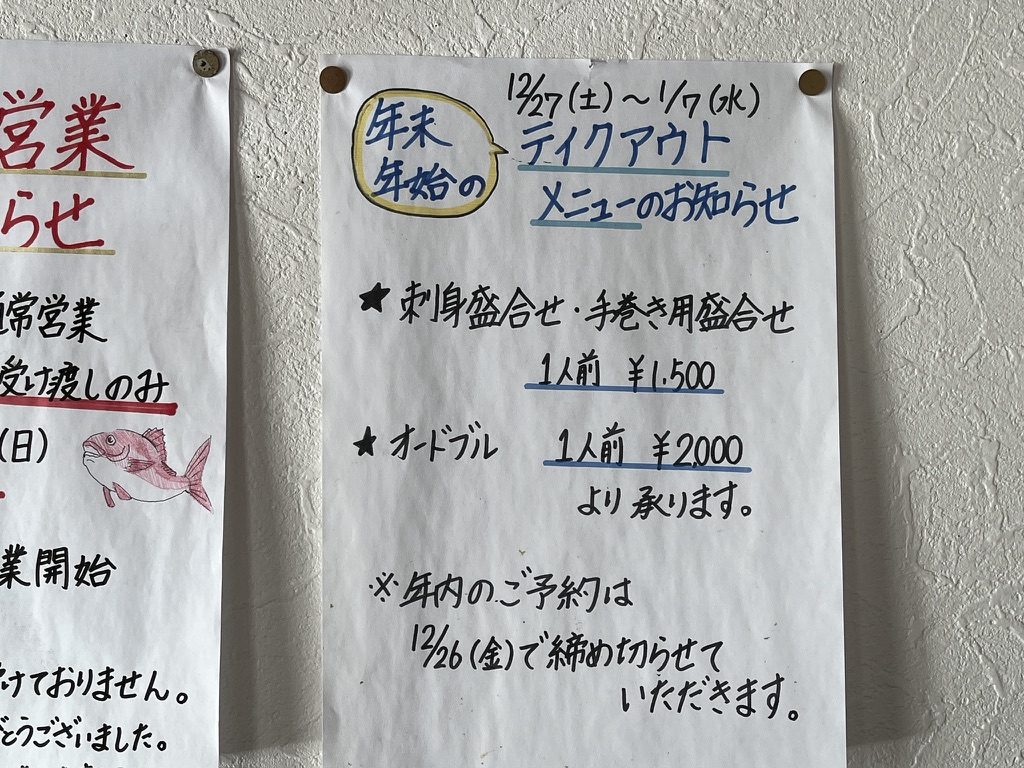 営業
らせ
通常営業
受け渡しのみ
(日)
業開始
けておりません。
とうございました。
12/27(土)～1/7(水)
年末
年始の
テイクアウト
メニューのお知らせ
★刺身盛合せ・手巻き用盛合せ
1人前 ¥1.500
★オードブル 1人前 ¥2.000
より承ります。
※年内のご予約は
12/26(金)で締め切らせて
いただきます。